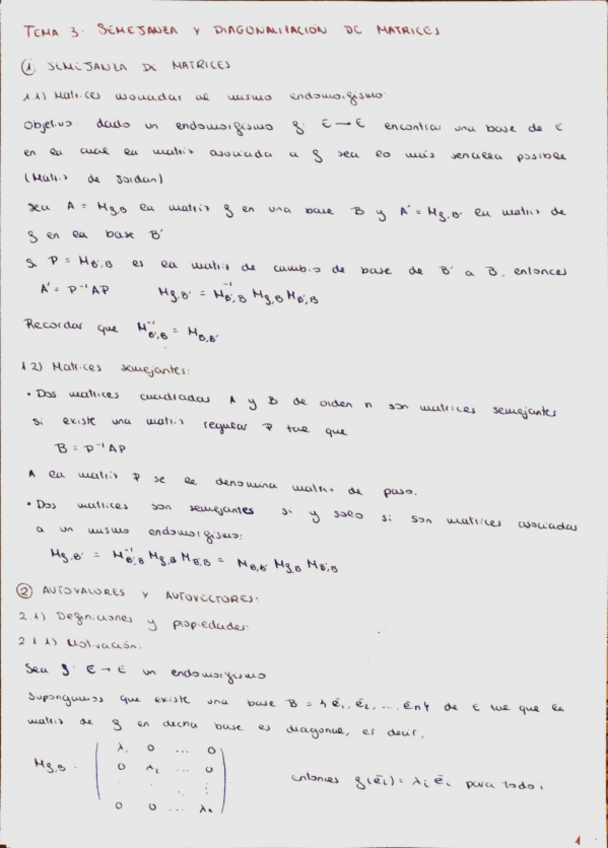 TEMA 3: SEMEJANZA Y DIAGONALIZACIÓN DE MATRICES
① SEMEJANZA DE MATRICES
1.1) Matrices asociadas al mismo endomorfismo:
Objetivo: dado un endomorfismo f: E → E encontrar una base de E
en la cual la matriz asociada a f sea lo más sencilla posible
(Matriz de Jordan)
Sea A = M_{f,B} la matriz f en una base B y A' = M_{f,B'} la matriz de
f en la base B'
Si P = M_{B',B} es la matriz de cambio de base de B' a B, entonces
A' = P⁻¹AP M_{f,B'} = M⁻¹_{B',B} M_{f,B} M_{B',B}
Recordar que M⁻¹_{B',B} = M_{B,B'}
1.2) Matrices semejantes:
• Dos matrices cuadradas A y B de orden n son matrices semejantes
si existe una matriz regular P tal que
B = P⁻¹AP
A la matriz P se le denomina matriz de paso.
• Dos matrices son semejantes si y solo si son matrices asociadas
a un mismo endomorfismo:
M_{f,B'} = M⁻¹_{B',B} M_{f,B} M_{B',B} = M_{B,B'} M_{f,B} M_{B',B}
② AUTOVALORES Y AUTOVECTORES:
2.1) Definiciones y propiedades:
2.1.1) Motivación:
Sea f: E → E un endomorfismo
Supongamos que existe una base B = {ē₁, ē₂, ..., ēn} de E tal que la
matriz de f en dicha base es diagonal, es decir,
λ₁ 0 ... 0
M_{f,B} = 0 λ₂ ... 0 entonces f(ēᵢ) = λᵢ ēᵢ para todo i
: : ⋱ :
0 0 ... λn
1